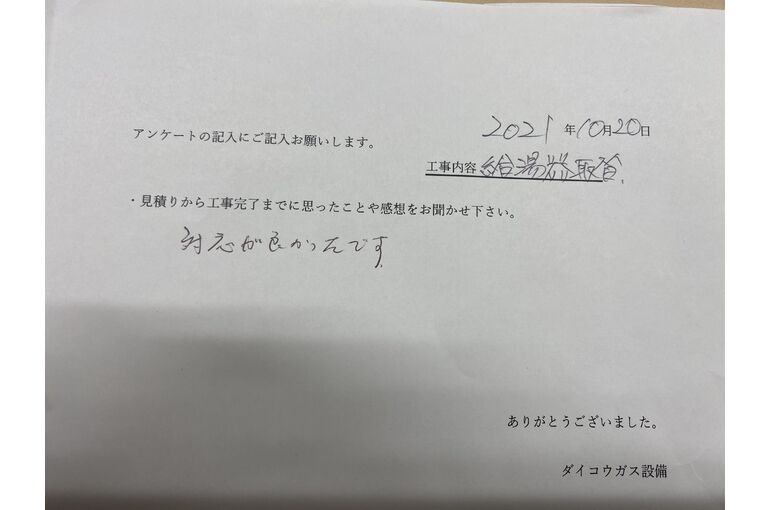 2021年10月20日
アンケートの記入にご記入お願いします。
工事内容 給湯器取替
・見積りから工事完了までに思ったことや感想をお聞かせ下さい。
対応が良かったです
ありがとうございました。
ダイコウガス設備